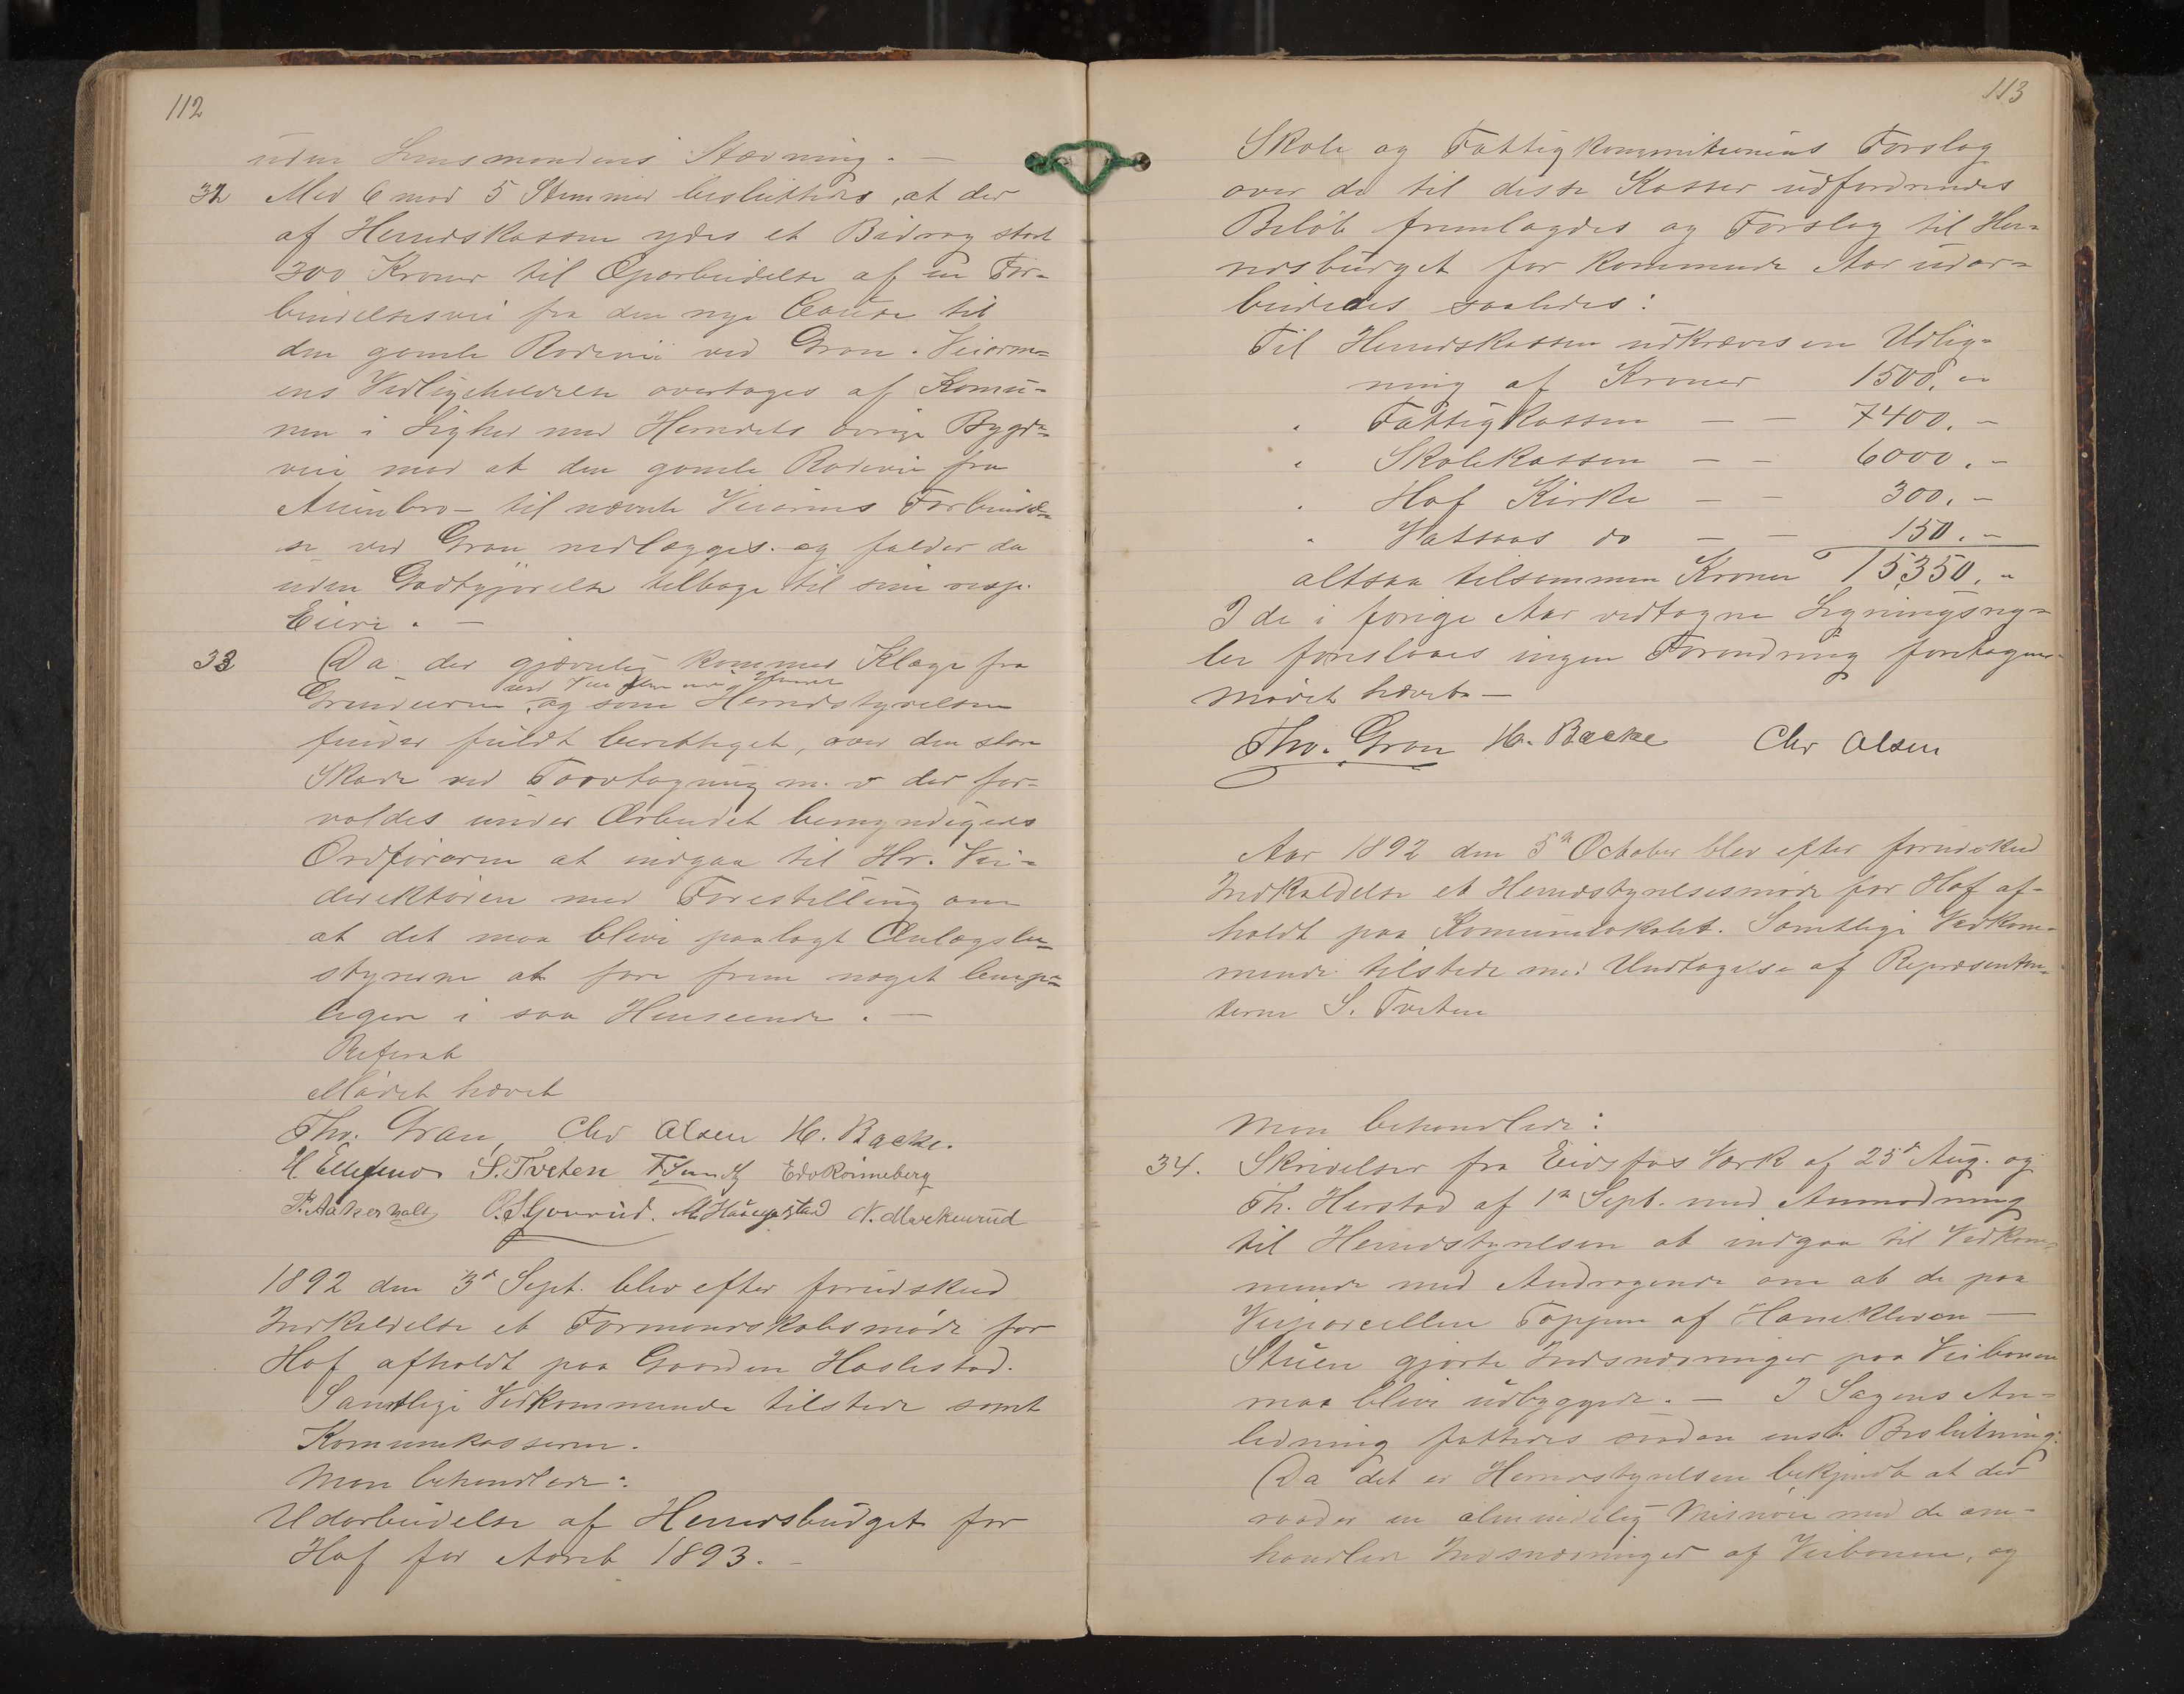 112
uden Lensmandens Stævning. —
32 Med 6 mod 5 Stemmer besluttedes, at der
af Herredskassen ydes et Bidrag stort
300 Kroner til Oparbeidelse af en For-
bindelsesvei fra den nye Chausé til
den gamle Rodevei ved Gran. Veiarm-
ens Vedligeholdelse overtages af Komu-
nen i Lighed med Herredets øvrige Bygde-
veie mod at den gamle Rodevei fra
bro - til nævnte Veiarms Forbindel-
se ved Gran nedlægges og falder da
uden Godtgjørelse tilbage til sine resp.
Eiere. —
33 Da der gjævnlig kommer Klage fra
Grundeierne, og som Herredstyrelsen
finder fuldt berettiget, over den store
Skade ved Jordtagning m. v. der for-
voldes under Arbeidet bemyndigedes
Ordføreren at indgaa til Hr. Vei-
direktøren med Forestilling om
at det maa blive paalagt Anlægsbe-
styreren at fare frem noget lempe-
ligere i saa Henseende. —
Referat
Mødet hævet
Tho. Gran, Chr Olsen H. Backe.
H. Ellefsen S. Tveten Edv Rønneberg
P. Aakerholt O. S. Gourud. M. Haugestad N. Mærkenrud
1892 den 3d Sept. blev efter forudskeed
Indkaldelse et Formandskabsmøde for
Hof afholdt paa Gaarden Haslestad.
Samtlige Vedkommende tilstede samt
Komunekassereren.
Man behandlede:
Udarbeidelse af Herredsbudget for
Hof for Aaret 1893. —
113
Skole og Fattigkommitionens Forslag
over de til disse Kasser udfordrendes
Beløb fremlagdes og Forslag til Her-
redsbudget for kommende Aar udar-
beidedes saaledes:
Til Herredskassen udkræves en Udlig-
ning af Kroner 1500. "
" Fattigkassen — — 7400. -
" Skolekassen — — 6000. -
" Hof Kirke — — 300. -
" Vatsaas do — — 150. -
altsaa tilsammen Kroner 15350. "
I de i forige Aar vedtagne Ligningsreg-
ler foreslaaes ingen Forandring foretagen
Mødet hævet —
Tho. Gran H. Backe Chr Olsen
Aar 1892 den 5te October blev efter forudskeed
Indkaldelse et Herredstyrelsesmøde for Hof af-
holdt paa Komunelokalet. Samtlige Vedkom-
mende tilstede med Undtagelse af Repræsentan-
terne S. Tveten
Man behandlede:
34. Skrivelser fra Eidsfos Værk af 25de Aug. og
Th. Herstad af 1ste Sept. med Anmodning
til Herredstyrelsen at indgaa til Vedkom-
mende med Andragende om at de paa
Veiparcellen Toppen af Hanekleven —
Stuen gjorte Indsnævringer paa Veibanen
maa blive udbyggede. — I Sagens An-
ledning fattedes saadan enst. Beslutning:
Da det er Herredstyrelsen bekjendt at der
raader en almindelig Misnøie med de om-
handlede Indsnævringer af Veibanen, og